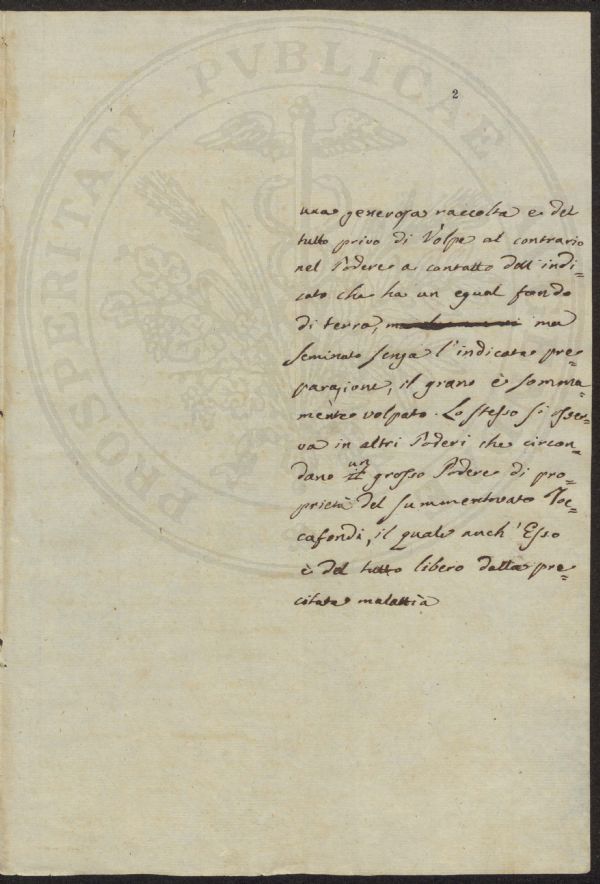 PROSPERITATI PVBLICAE
2
una generosa raccolta e del
tutto privo di Volpe al contrario
nel Podere a contatto dell'indi=
cato che ha un egual fondo
di terra, ma
seminato senza l'indicata pre=
parazione, il grano è somma=
mente volpato. Lo stesso si osser=
va in altri Poderi che circon=
dano un grosso Podere di pro=
prietà del summentovato Toc=
cafondi, il quale anch'Esso
è del tutto libero dalla pre=
citata malattia